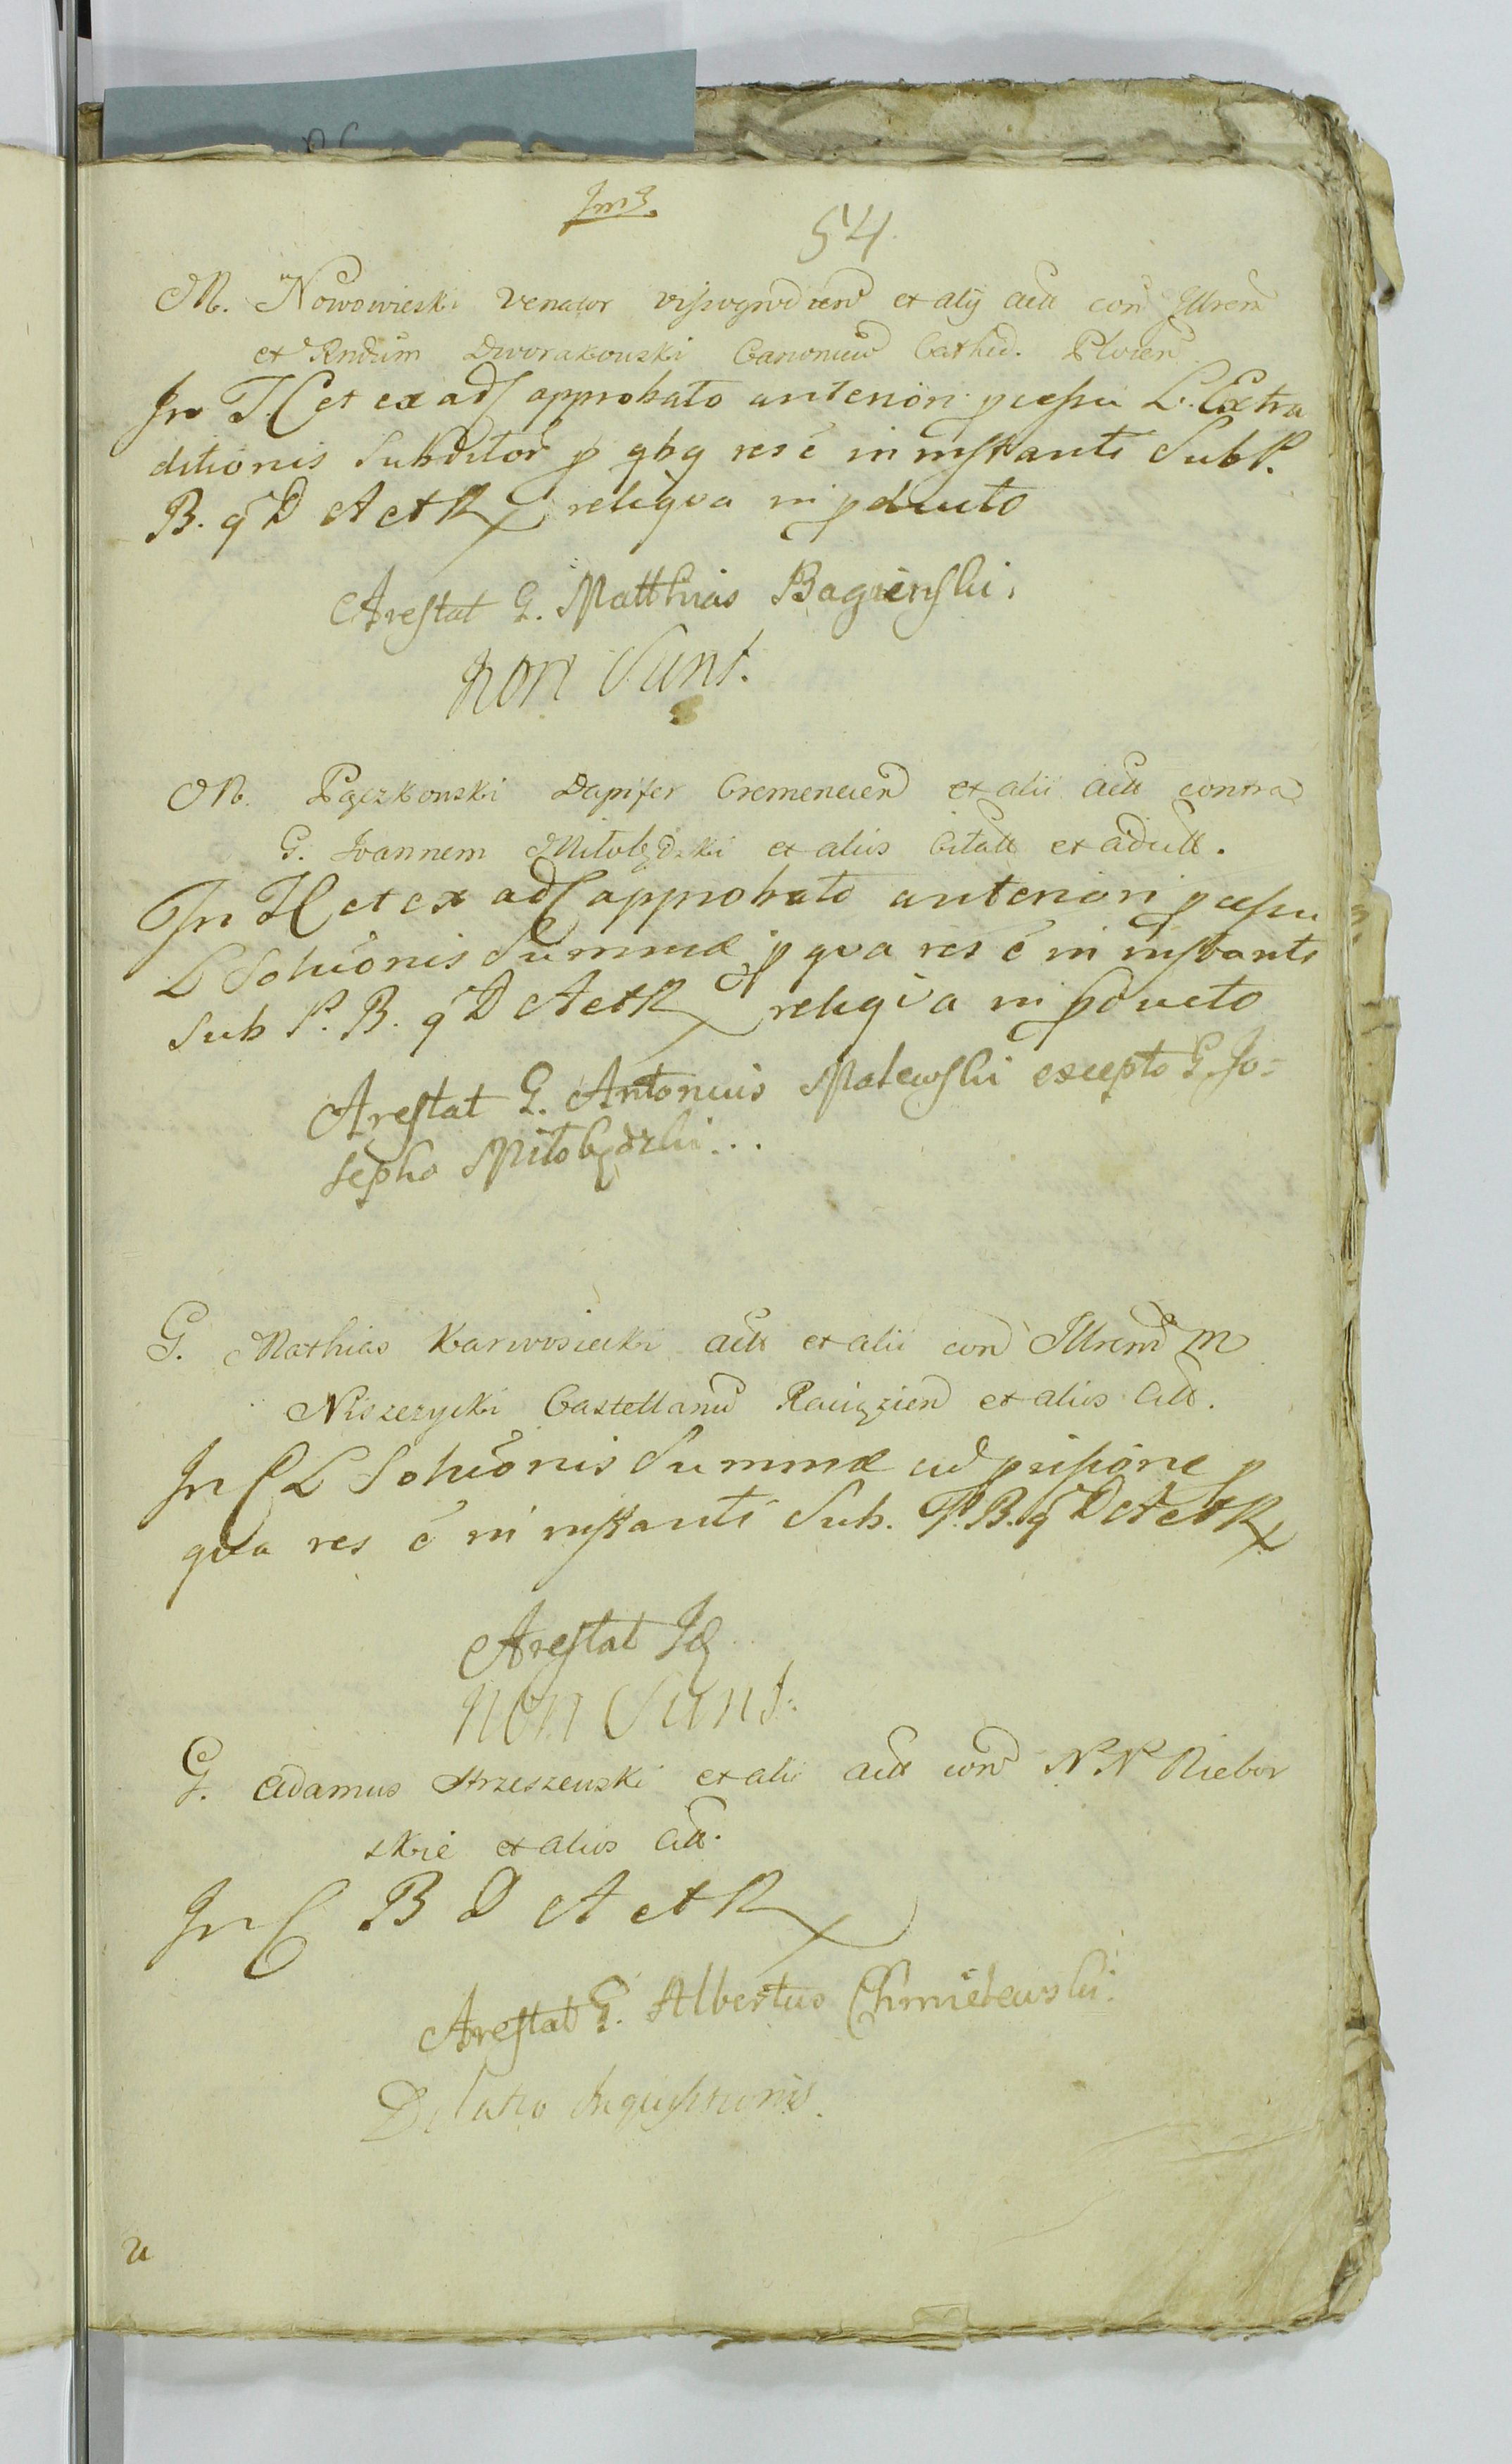 54.
M. Nowowieski Venator Visogrodien et alij act con Illrem
et Rndum Dworakowski Canonicu Cathed. Plocen
In TC et ex ads approbato anteriori pcessu L. Extra
ditionis Subditor p qbq res e in instanti Sub P.
B. q D A et R reliqva in pducto
Arestat G. Matthias Bagienski.
non Sunt.
M. Pączkowski Dapifer Cremenecen et alii act contra
G. Joannem Miłobędzki et alios Citatt et adcitt.
In TC et ex ads approbato anteriori pcessu
L Soluonis Summæ p qva res e in instanti
Sub P. B. q D A et R reliqva in pducto
Arestat G. Antonius Malewski excepto G. Jo=
sepho Miłobędzki...
G. Mathias Karwosiecki act et alii con Illrem M
Niszczycki Castellanu Raciązien et alios Citt.
In C L Soluonis Summæ ad pcisione p
qva res e in instanti Sub. P. B. q D A et R
Arestat Id
non Sunt.
G. Adamus Strzeszewski et alii act con N N Niebor
skie et alios Citt.
In C B D A et R
Arestat G. Albertus Chmielewski.
Dilatio Inquisitionis.